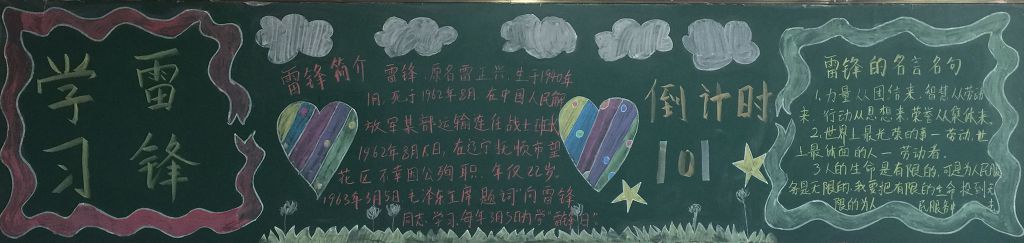 学习
雷锋
雷锋简介
雷锋,原名雷正兴,生于1940年
1月,死于1962年8月,在中国人民解
放军某部运输连任战士
1962年8月15日,在辽宁抚顺市望
花区不幸因公殉职,年仅22岁。
1963年3月5日毛泽东主席题词"向雷锋
同志学习"每年3月5日为学"雷锋日"
倒计时
101
雷锋的名言名句
1.力量从团结来,智慧从劳动
来,行动从思想来,荣誉从集体来。
2.世界上最光荣的事—劳动,世
上最体面的人—劳动者。
3.人的生命是有限的,可是为人民服
务是无限的,我要把有限的生命投到无
限的为人民服务